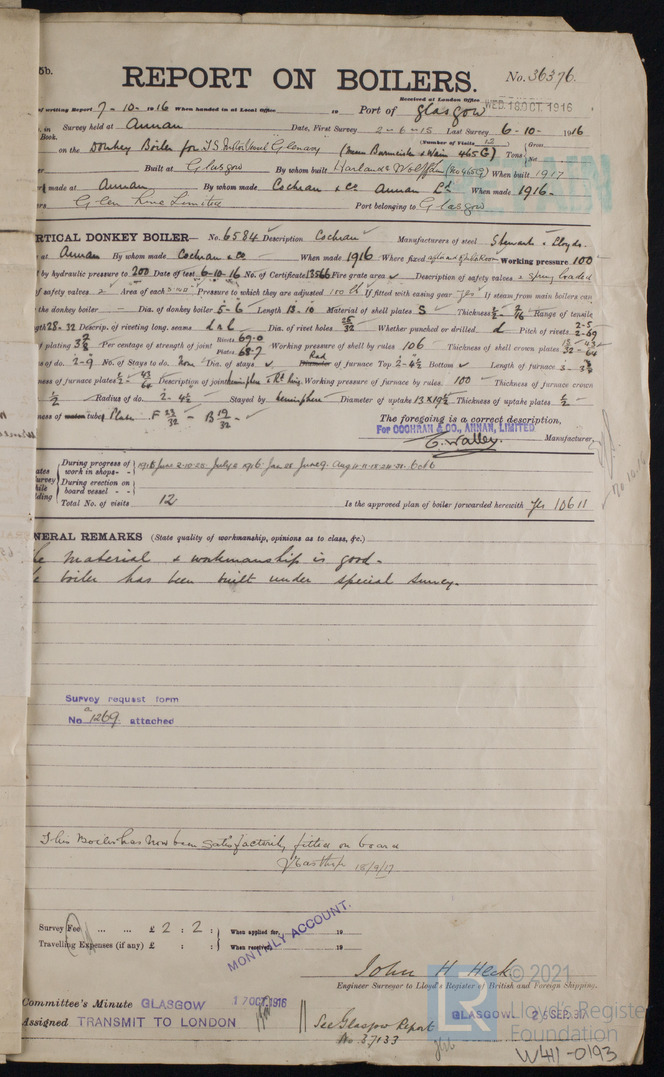 5b.
REPORT ON BOILERS.
No. 36376.
Received at London Office WED. 18 OCT. 1916
of writing Report 7- 10- 1916 When handed in at Local Office 19 Port of Glasgow
in Book. Survey held at Annan Date, First Survey 2-6-15 Last Survey 6-10- 1916
(Number of Visits 12)
on the Donkey Boiler for Glenavy (Harland & Wolff 465G) Tons { Gross Net
Built at Glasgow By whom built Harland & Wolff Ltd (No 465G) When built 1917
made at Annan By whom made Cochran & Co Annan Ld When made 1916-
Glen Line Limited Port belonging to Glasgow
RTICAL DONKEY BOILER— No. 6584 Description Cochran Manufacturers of steel Stewarts & Lloyds.
at Annan By whom made Cochran & Co When made 1916 Where fixed Working pressure 100
by hydraulic pressure to 200 Date of test 6-10-16 No. of Certificate 13566 Fire grate area ✓ Description of safety valves 2 Spring loaded
of safety valves 2 Area of each Pressure to which they are adjusted 100 lb If fitted with easing gear Yes If steam from main boilers can
the donkey boiler - Dia. of donkey boiler 5-6 Length 13-10 Material of shell plates S Thickness Range of tensile
gth 28-32 Descrip. of riveting long. seams d & l Dia. of rivet holes 25/32 Whether punched or drilled. d Pitch of rivets 2-5 2-69
of plating 3 7/8 Per centage of strength of joint Rivets 69.0 Plates 68.7 Working pressure of shell by rules 106 Thickness of shell crown plates
s of do. 2-9 No. of Stays to do. None Dia. of stays ✓ Rad of furnace Top 2-6 1/2 Bottom ✓ Length of furnace
ness of furnace plates Description of joint Working pressure of furnace by rules. 100 - Thickness of furnace crown
1/2 Radius of do. 2-4 1/2 Stayed by hemisphere Diameter of uptake 13 x 19 1/2 Thickness of uptake plates 1/2
ness of water tubes Plates F 23/32 - B 19/32 -
The foregoing is a correct description,
For COCHRAN & CO., ANNAN, LIMITED.
Manufacturer.
During progress of work in shops - -
During erection on board vessel - -
Total No. of visits 12 Is the approved plan of boiler forwarded herewith Yes 10611
NERAL REMARKS (State quality of workmanship, opinions as to class, &c.)
he material & workmanship is good.
e boiler has been built under special survey.
Survey request form
No. 1269 attached
This Boiler has now been satisfactorily fitted on board
18/9/17
Survey Fee ... ... £ 2 : 2 : When applied for, 19
Travelling Expenses (if any) £ : : When received, 19
MONTHLY ACCOUNT.
John H Heck
Engineer Surveyor to Lloyd's Register of British and Foreign Shipping.
Committee's Minute GLASGOW 17 OCT 1916
Assigned TRANSMIT TO LONDON
See Glasgow Report
No. 37133
GLASGOW
© 2021
Lloyd's Register
Foundation
W411-0193